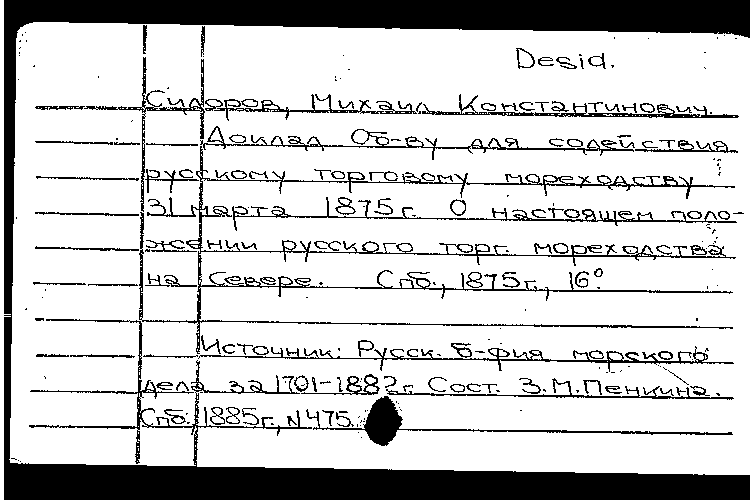 Desid.
Сидоров, Михаил Константинович.
Доклад Об-ву для содействия
русскому торговому мореходству
31 марта 1875 г. О настоящем поло-
жении русского торг. мореходства
на Севере. Спб., 1875 г., 16°.
Источник: Русск. б-фия морского
дела за 1701-1882 г. Сост. З.М.Пенкина.
Спб., 1885 г., N 475.